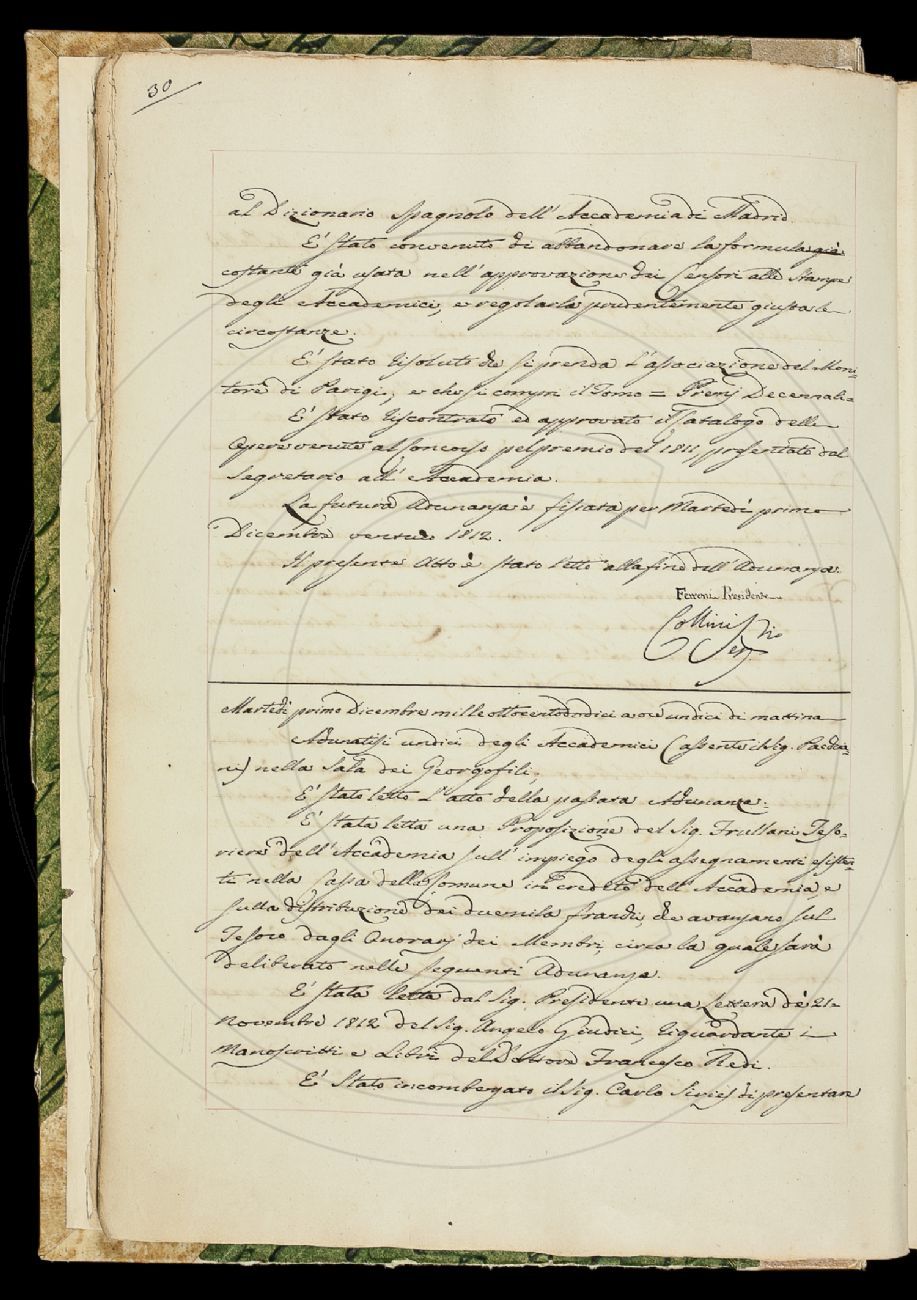 30
al Dizionario Spagnolo dell' Accademia di Madrid
E' stato convenuto di abbandonare la formula già
costante già usata nell' approvazione dei Censori alle Stampe
degli Accademici, e regolarla prudentemente giusta le
circostanze.
E' stato risoluto che si prenda l'associazione del Moni=
tore di Parigi, e che si compri il Tomo = Premj Decennali=
E' stato riscontrato ed approvato il Catalogo delle
Opere venute al Concorso pel premio del 1811 presentato dal
Segretario all' Accademia.
La futura Adunanza è fissata per Martedì primo
Dicembre 1812.
Il presente Atto è stato letto alla fine dell' Adunanza.
Ferroni Presidente
Collini
Martedì primo Dicembre mille ottocentododici a ore undici di mattina
Adunatisi undici degli Accademici (assente il Sig. Paolini)
nella Sala dei Georgofili,
E' stato letto l'atto della passata Adunanza.
E' stata letta una Proposizione del Sig. Frullani Teso-
riere dell' Accademia sull' impiego degli assegnamenti esisten=
ti nella Cassa della Comune in credito dell' Accademia, e
sulla distribuzione dei duemila franchi, che avanzano sul
Tesoro dagli Onorarj dei Membri, circa la quale sarà
deliberato nelle seguenti Adunanze.
E' stata letta dal Sig. Presidente una Lettera de' 21=
Novembre 1812 del Sig. Angelo Giudici, riguardante i
Manoscritti e Libri del Dottore Francesco Redi.
E' stato incombenzato il Sig. Carlo Siries di presentare